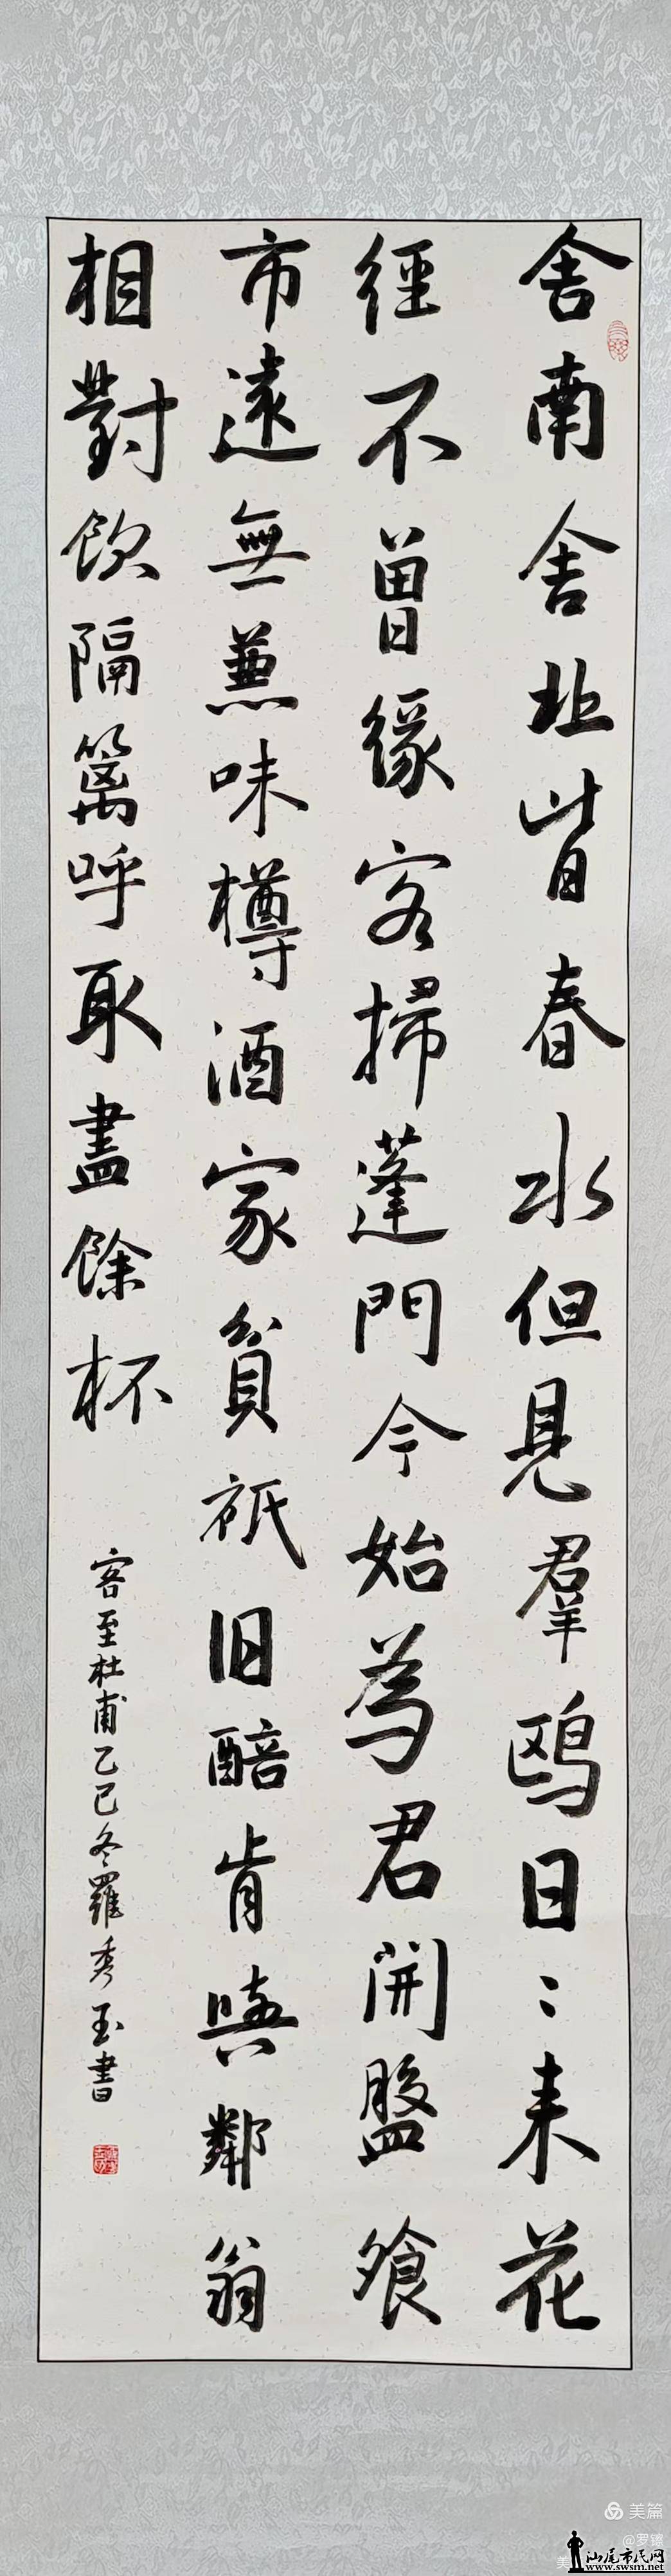 舍南舍北皆春水但見羣鷗日〻来花
徑不曾緣客掃蓬門今始為君開盤飧
市遠無蒹味樽酒家貧祇旧醅肯與鄰翁
相對飲隔籬呼取盡餘杯
客至杜甫乙巳冬羅秀玉書
美篇
@罗
汕尾市民网
www.swsm.net